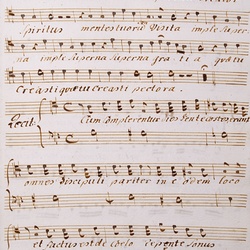 Spiritus mentes tuorum Visita imple Super
na imple Superna Superna gratia quæ tu
Creasti quæ tu Creasti pectora.
Recit: Cum complerentur dies Pentecostes erant
omnes discipuli pariter in eodem loco
et factus est de cœlo repente Sonus